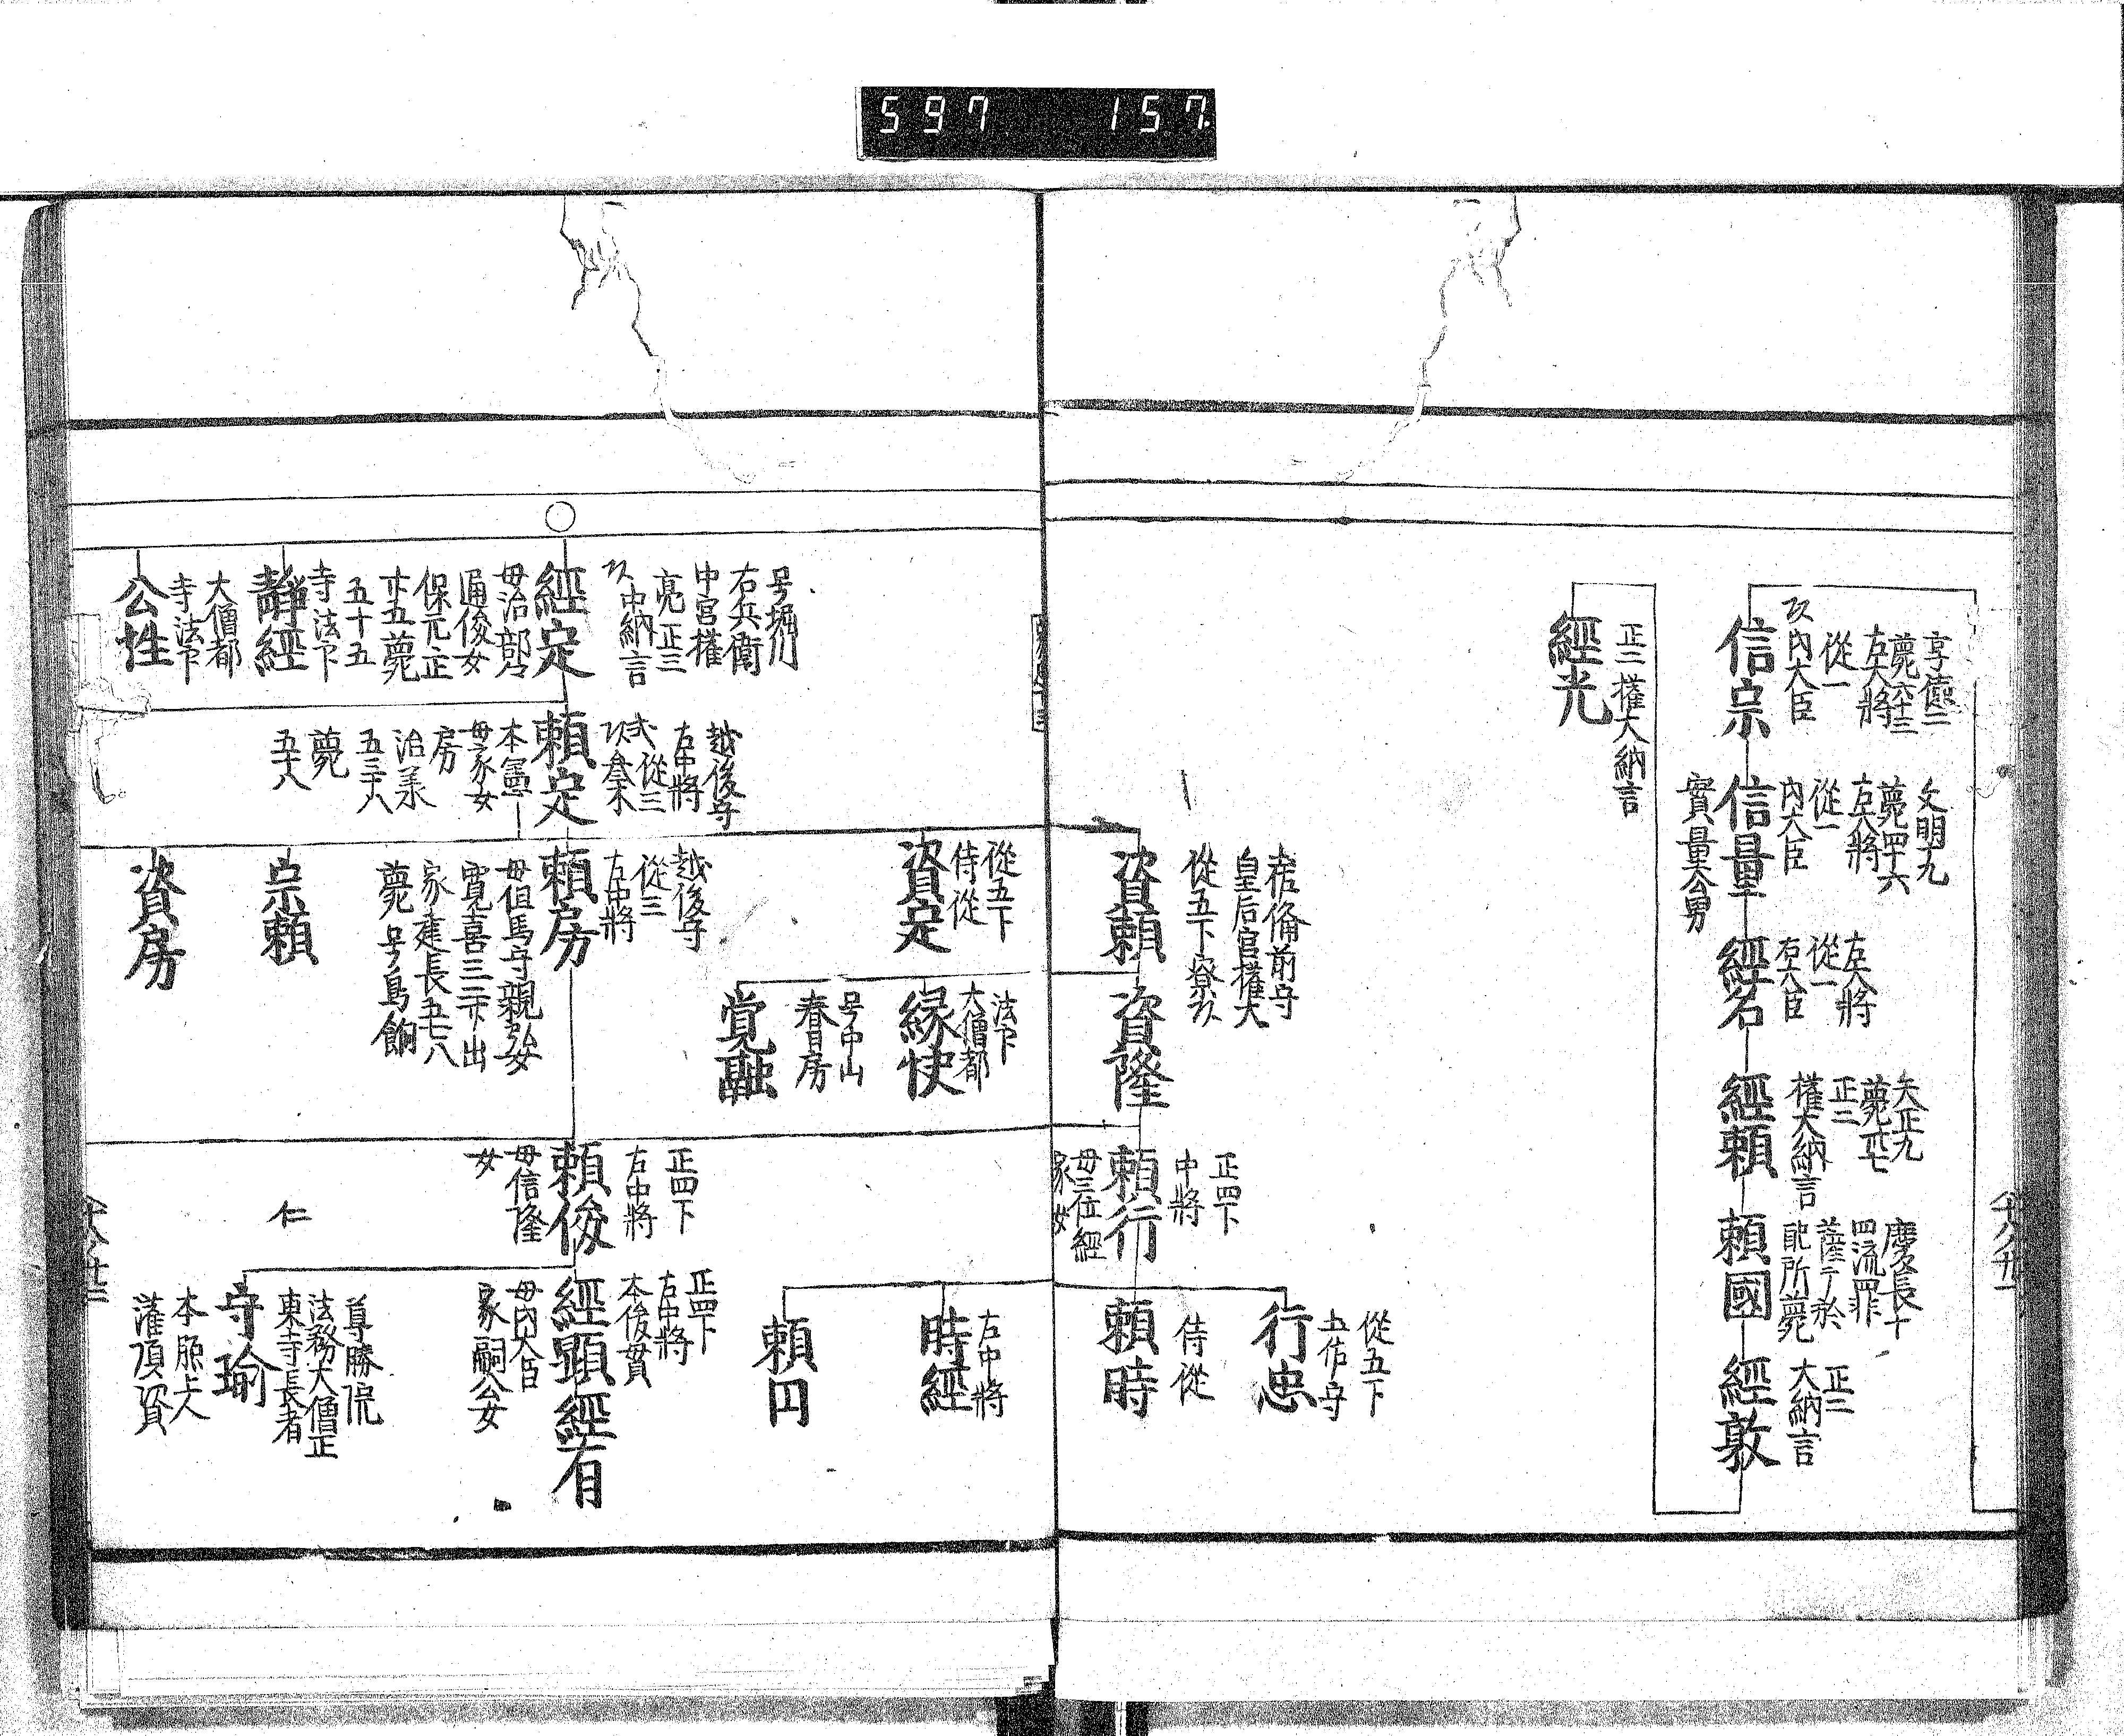 597 157.
享德二
薨六十三
左大將
從一
內大臣
信宗
文明九
薨四十六
左大將
從一
內大臣
信量
實量公男
左大將
從一
右大臣
經名
天正九
正二
權大納言
經賴
慶長十
四流罪
配所薨
賴國
正二
大納言
經敦
正二權大納言
經光
皇后宮權大
從五下
資賴
資隆
正四下
中將
賴行
母三位經
家女
侍從
賴時
從五下
行忠
從五下
侍從
資定
法下
大僧都
緣快
号中山
春日房
覚融
右中將
時經
賴円
号堀川
右兵衛
中宮權
亮正三
中納言
經定
母治部
通俊女
保元正
廿五薨
五十五
寺法下
靜經
大僧都
寺法下
公性
越後守
右中將
從三
賴定
母家女
房
治承
薨
五十八
越後守
從三
右中將
賴房
母但馬守親弘女
寬喜三三下出
家建長五七八
薨号鳥餉
宗賴
資房
正四下
右中將
賴俊
母信隆
女
仁
正四下
右中將
本後貫
經顯
經有
母內大臣
家嗣公女
尊勝院
法務大僧正
東寺長者
守瑜
本願上人
灌頂資